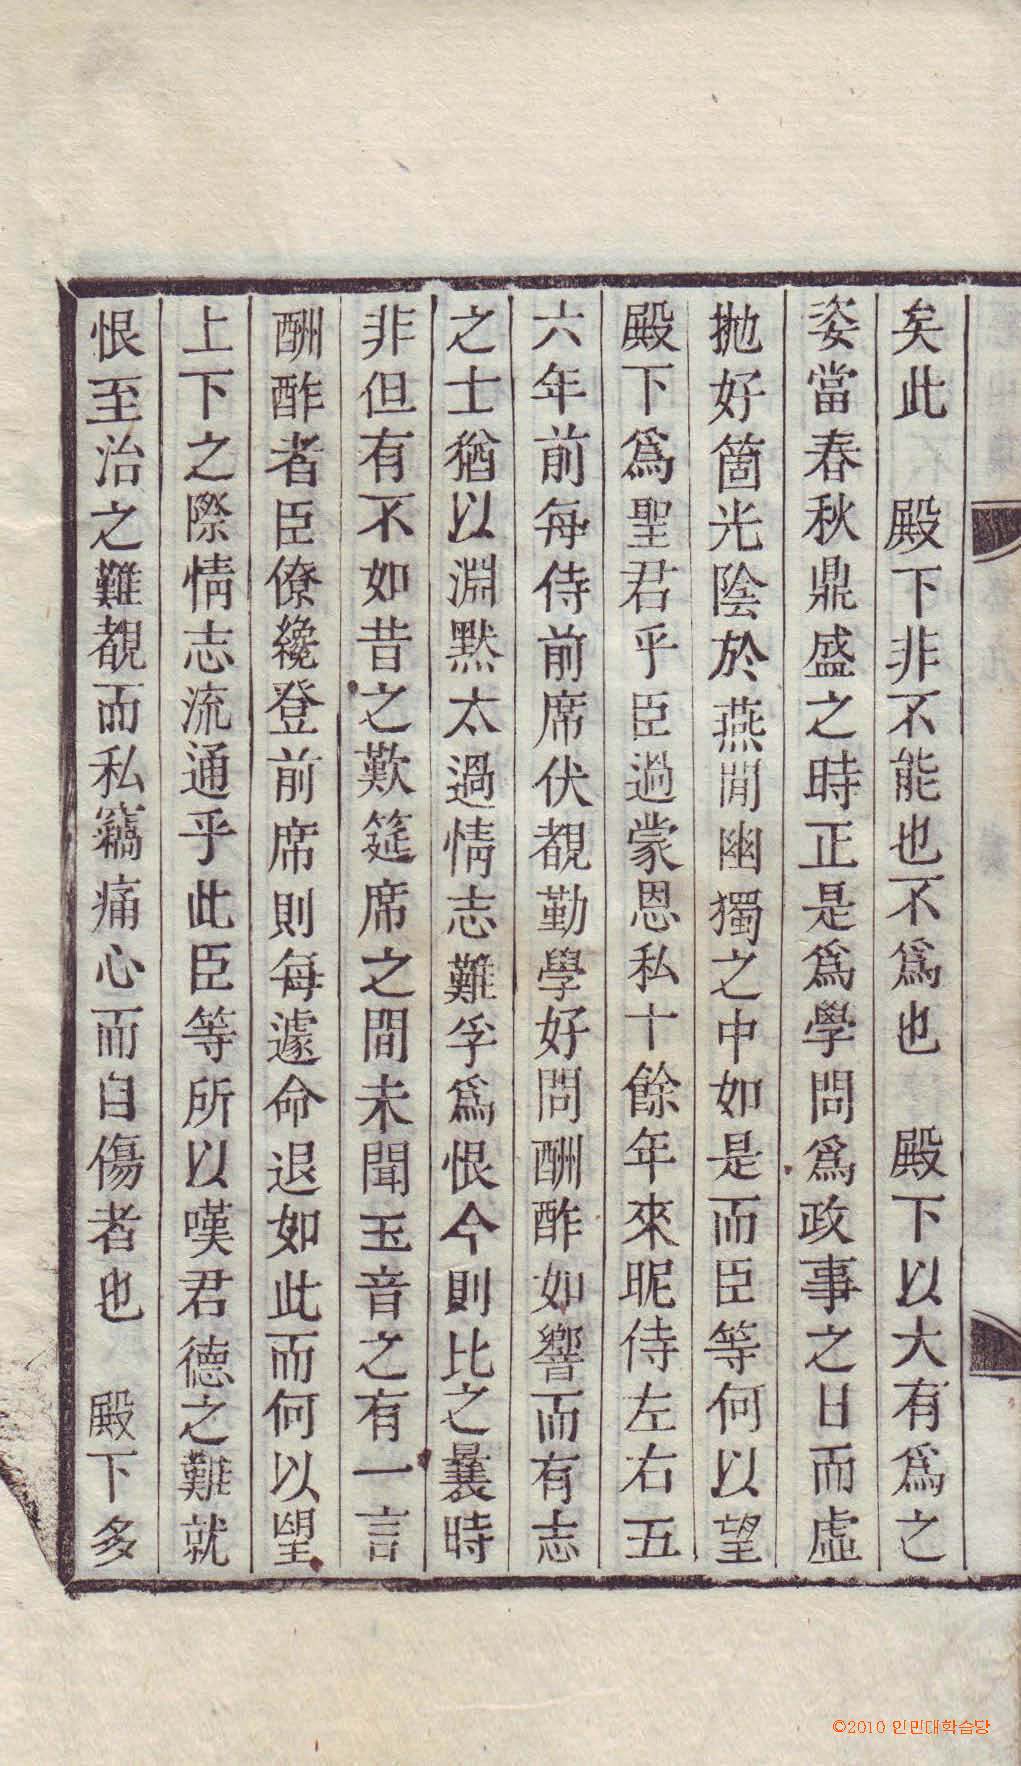 矣此　殿下非不能也不爲也　殿下以大有爲之
姿當春秋鼎盛之時正是爲學問爲政事之日而虛
抛好箇光陰於燕閒幽獨之中如是而臣等何以望
殿下爲聖君乎臣過蒙恩私十餘年來昵侍左右五
六年前每侍前席伏覩勤學好問酬酢如響而有志
之士猶以淵默太過情志難孚爲恨今則比之曩時
非但有不如昔之歎筵席之間未聞玉音之有一言
酬酢者臣僚纔登前席則每遽命退如此而何以望
上下之際情志流通乎此臣等所以嘆君德之難就
恨至治之難覩而私竊痛心而自傷者也　殿下多
©2010 인민대학습당